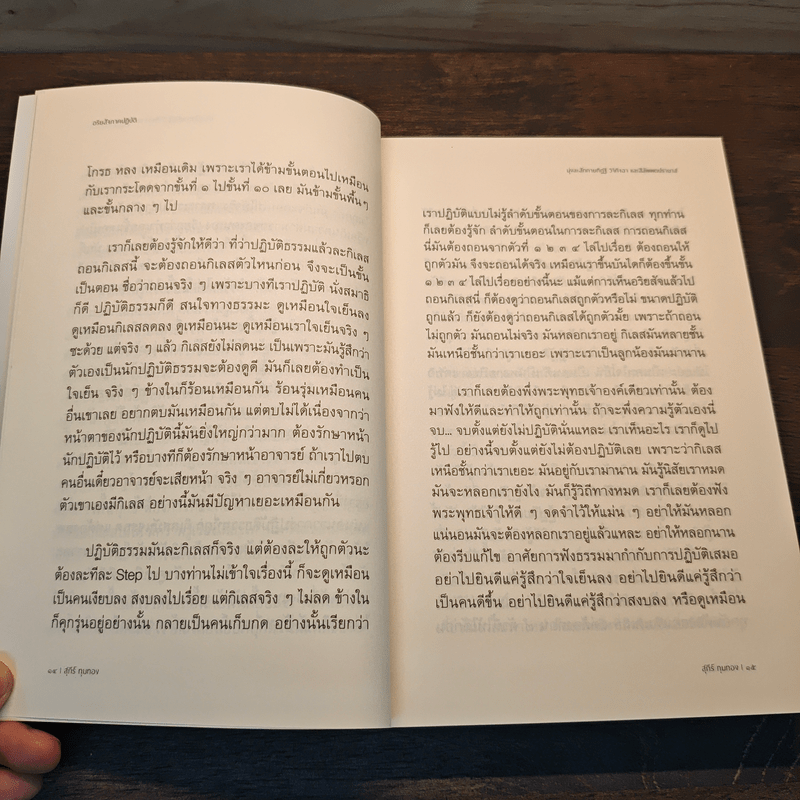 อริยสัจภาคปฏิบัติ
โกรธ หลง เหมือนเดิม เพราะเราได้ข้ามขั้นตอนไปเหมือน
กับเรากระโดดจากขั้นที่ ๑ ไปขั้นที่ ๑๐ เลย มันข้ามขั้นพื้นๆ
และขั้นกลาง ๆ ไป
เราก็เลยต้องรู้จักให้ดีว่า ที่ว่าปฏิบัติธรรมแล้วละกิเลส
ถอนกิเลสนี้ จะต้องถอนกิเลสตัวไหนก่อน จึงจะเป็นขั้น
เป็นตอน ชื่อว่าถอนจริง ๆ เพราะบางทีเราปฏิบัติ นั่งสมาธิ
ก็ดี ปฏิบัติธรรมก็ดี สนใจทางธรรมะ ดูเหมือนใจเย็นลง
ดูเหมือนกิเลสลดลง ดูเหมือนนะ ดูเหมือนเราใจเย็นจริง ๆ
ซะด้วย แต่จริง ๆ แล้ว กิเลสยังไม่ลดนะ เป็นเพราะมันรู้สึกว่า
ตัวเองเป็นนักปฏิบัติธรรมจะต้องดูดี มันก็เลยต้องทำเป็น
ใจเย็น จริง ๆ ข้างในก็ร้อนเหมือนกัน ร้อนรุ่มเหมือนคน
อื่นเขาเลย อยากตบมันเหมือนกัน แต่ตบไม่ได้เนื่องจากว่า
หน้าตาของนักปฏิบัตินี้มันยิ่งใหญ่กว่ามาก ต้องรักษาหน้า
นักปฏิบัติไว้ หรือบางทีก็ต้องรักษาหน้าอาจารย์ ถ้าเราไปตบ
คนอื่นเดี๋ยวอาจารย์จะเสียหน้า จริง ๆ อาจารย์ไม่เกี่ยวหรอก
ตัวเขาเองมีกิเลส อย่างนี้มันมีปัญหาเยอะเหมือนกัน
ปฏิบัติธรรมมันละกิเลสก็จริง แต่ต้องละให้ถูกตัวนะ
ต้องละทีละ Step ไป บางท่านไม่เข้าใจเรื่องนี้ ก็จะดูเหมือน
เป็นคนเงียบลง สงบลงไปเรื่อย แต่กิเลสจริง ๆ ไม่ลด ข้างใน
ก็คุกรุ่นอยู่อย่างนั้น กลายเป็นคนเก็บกด อย่างนั้นเรียกว่า
๑๔ | สุภีร์ ทุมทอง
เราปฏิบัติแบบไม่รู้ลำดับขั้นตอนของการละกิเลส ทุกท่าน
ก็เลยต้องรู้จัก ลำดับขั้นตอนในการละกิเลส การถอนกิเลส
นี่มันต้องถอนจากตัวที่ ๑ ๒ ๓ ๔ ไล่ไปเรื่อย ต้องถอนให้
ถูกตัวมัน จึงจะถอนได้จริง เหมือนเราขึ้นบันไดก็ต้องขึ้นขั้น
๑ ๒ ๓ ๔ ไล่ไปเรื่อยอย่างนี้แหละ แม้แต่การเห็นอริยสัจแล้วไป
ถอนกิเลสนี่ ก็ต้องดูว่าถอนกิเลสถูกตัวหรือไม่ ขนาดปฏิบัติ
ถูกแล้ว ก็ยังต้องดูว่าถอนกิเลสได้ถูกตัวมั้ย เพราะถ้าถอน
ไม่ถูกตัว มันถอนไม่จริง มันหลอกเราอยู่ กิเลสมันหลายชั้น
มันเหนือชั้นกว่าเราเยอะ เพราะเราเป็นลูกน้องมันมานาน
เราก็เลยต้องพึ่งพระพุทธเจ้าองค์เดียวเท่านั้น ต้อง
มาฟังให้ดีและทำให้ถูกเท่านั้น ถ้าจะพึ่งความรู้ตัวเองนี่
จบ... จบตั้งแต่ยังไม่ปฏิบัตินั่นแหละ เราเห็นอะไร เราก็ดูไป
รู้ไป อย่างนี้จบตั้งแต่ยังไม่ต้องปฏิบัติเลย เพราะว่ากิเลส
เหนือชั้นกว่าเราเยอะ มันอยู่กับเรามานาน มันรู้นิสัยเราหมด
มันจะหลอกเรายังไง มันก็รู้วิถีทางหมด เราก็เลยต้องฟัง
พระพุทธเจ้าให้ดี ๆ จดจำไว้ให้แม่น ๆ อย่าให้มันหลอก
แน่นอนมันจะต้องหลอกเราอยู่แล้วแหละ อย่าให้หลอกนาน
ต้องรีบแก้ไข อาศัยการฟังธรรมมากำกับการปฏิบัติเสมอ
อย่าไปยินดีแค่รู้สึกว่าใจเย็นลง อย่าไปยินดีแค่รู้สึกว่า
เป็นคนดีขึ้น อย่าไปยินดีแค่รู้สึกว่าสงบลง หรือดูเหมือน
สุภีร์ ทุมทอง | ๑๕